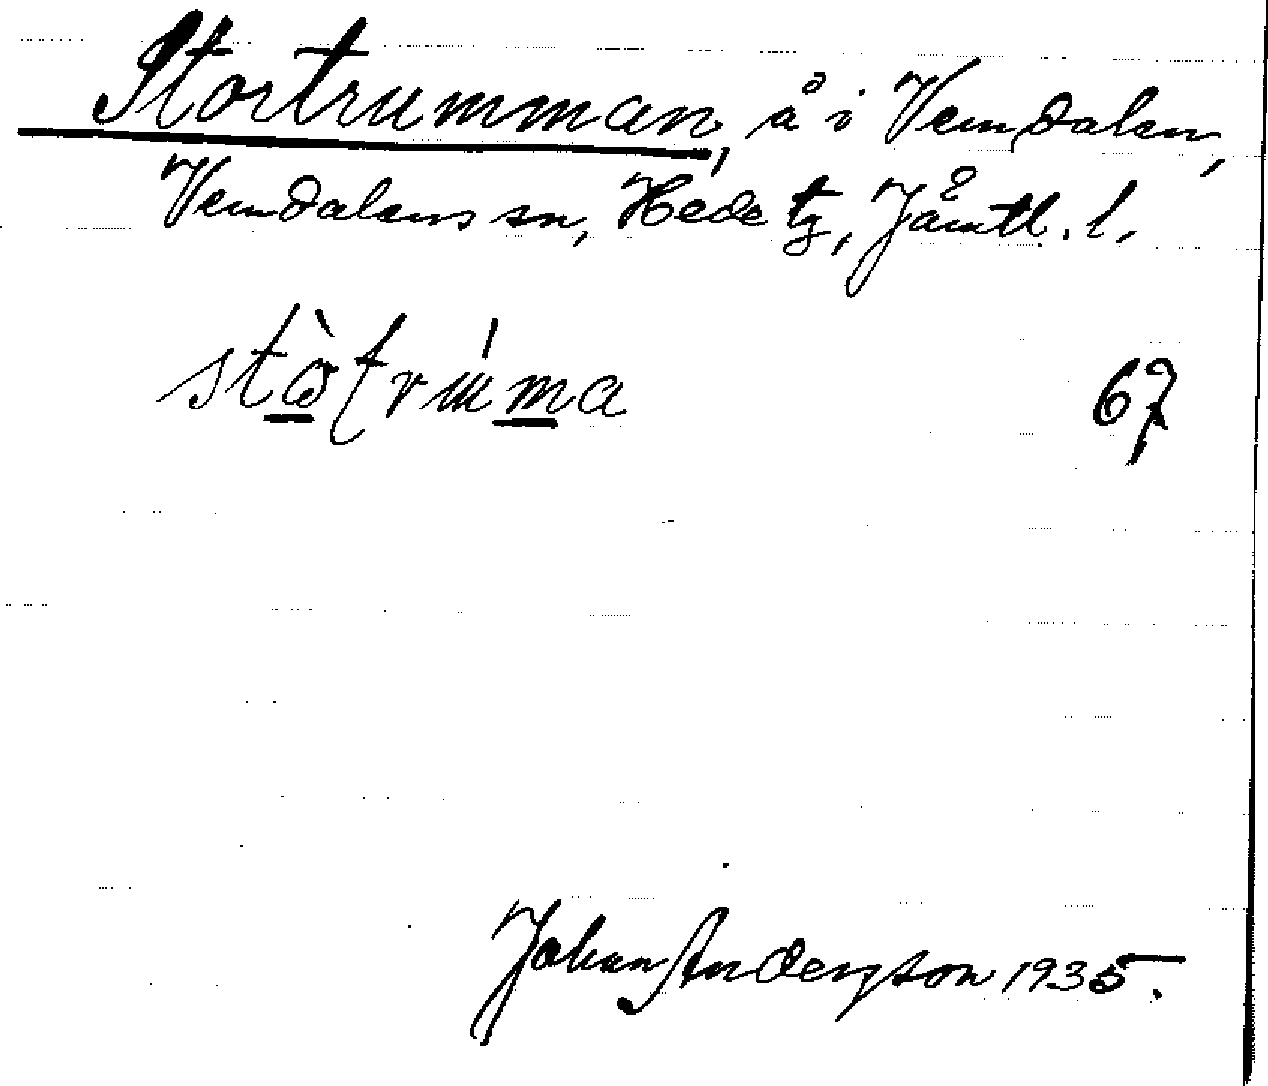 Stortrumman, å i Vemdalen,
Vemdalens sn, Hede tg, Jämtl. l.
67
Johan Anderson 1935.